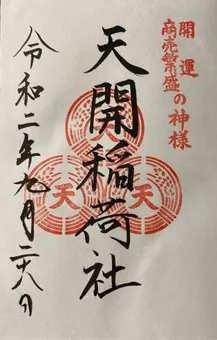 開運
商売繁盛の神様
天開稲荷社
天
天
令和二年九月二十八日